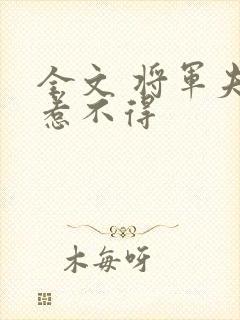 全文 将軍夫
惹不得
木每呀